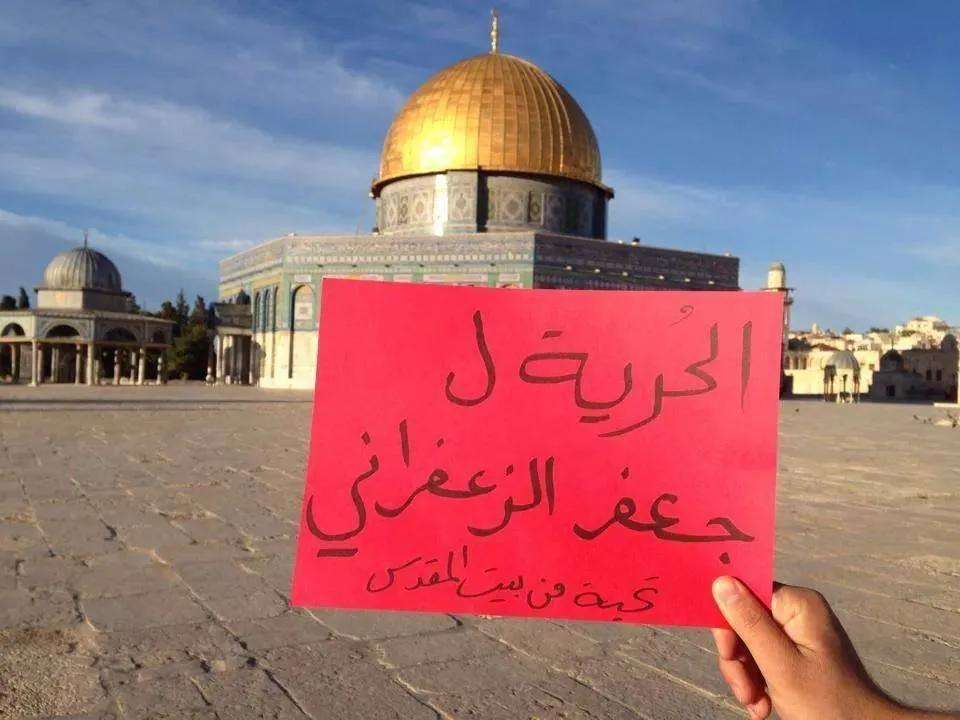 الحُرية ل
جعفر الزعفراني
تحية من بيت المقدس